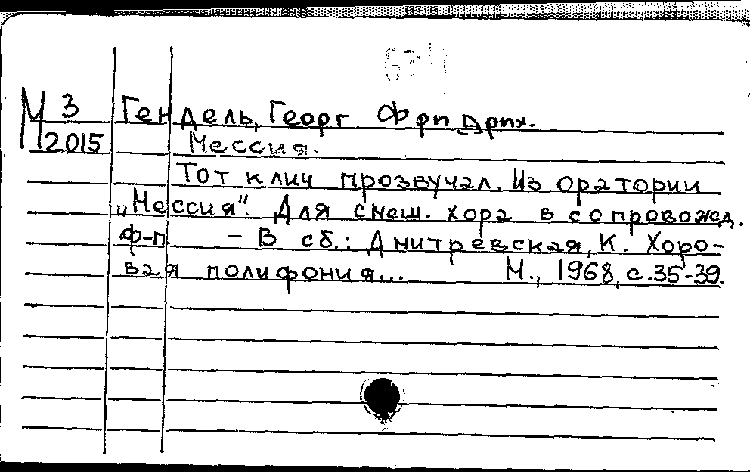 М 3
2015
Гендель, Георг Фрпдрпх.
Мессия.
Тот клич прозвучал. Из оратории
„Мессия". Для смеш. хора в сопровожд.
ф-п — В сб.: Дмитревская, К. Хоро-
вая полифония... М., 1968, с. 35-39.